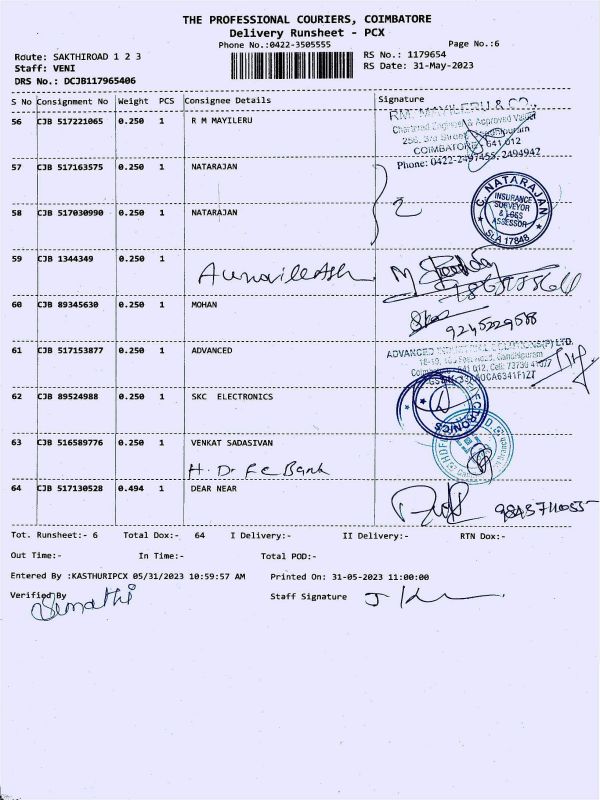 THE PROFESSIONAL COURIERS, COIMBATORE
Delivery Runsheet - PCX
Phone No.:0422-3505555
Page No.:6
Route: SAKTHIROAD 1 2 3
Staff: VENI
DRS No.: DCJB117965406
RS No.: 1179654
RS Date: 31-May-2023
S No Consignment No Weight PCS Consignee Details Signature
56 CJB 517221065 0.250 1 R M MAYILERU
RM. MAYILERU & CO.,
Chartered Engineer & Approved Valuer
COIMBATORE - 641 012
Phone: 0422-2497455, 2494942
57 CJB 517163575 0.250 1 NATARAJAN
C. NATARAJAN
INSURANCE
SURVEYOR
& LOSS
ASSESSOR
SLA 17848
58 CJB 517030990 0.250 1 NATARAJAN
59 CJB 1344349 0.250 1
60 CJB 89345630 0.250 1 MOHAN
9245229588
61 CJB 517153877 0.250 1 ADVANCED
62 CJB 89524988 0.250 1 SKC ELECTRONICS
63 CJB 516589776 0.250 1 VENKAT SADASIVAN
H D F C Bank
64 CJB 517130528 0.494 1 DEAR NEAR
Tot. Runsheet:- 6 Total Dox:- 64 I Delivery:- II Delivery:- RTN Dox:-
Out Time:- In Time:- Total POD:-
Entered By :KASTHURIPCX 05/31/2023 10:59:57 AM Printed On: 31-05-2023 11:00:00
Verified By Staff Signature